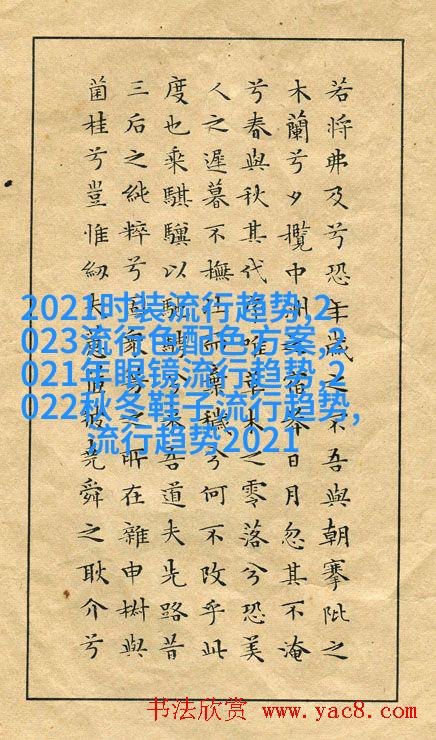 若將弗及兮恐年歲之不吾與朝搴阰之
木蘭兮夕攬中州之宿莽日月忽其不淹
兮春與秋其代序唯草木之零落兮恐美
人之遲暮不撫壯而棄穢兮何不改乎此
度也乘騏驥以馳騁兮來吾道夫先路昔
三后之純粹兮固衆芳之所在雜申椒與
菌桂兮豈惟紉夫蕙茝彼堯舜之耿介兮
2021时装流行趋势,2
023流行色配色方案,2
021年眼镜流行趋势,2
022秋冬鞋子流行趋势,
流行趋势2021
书法欣赏 www.yac8.com